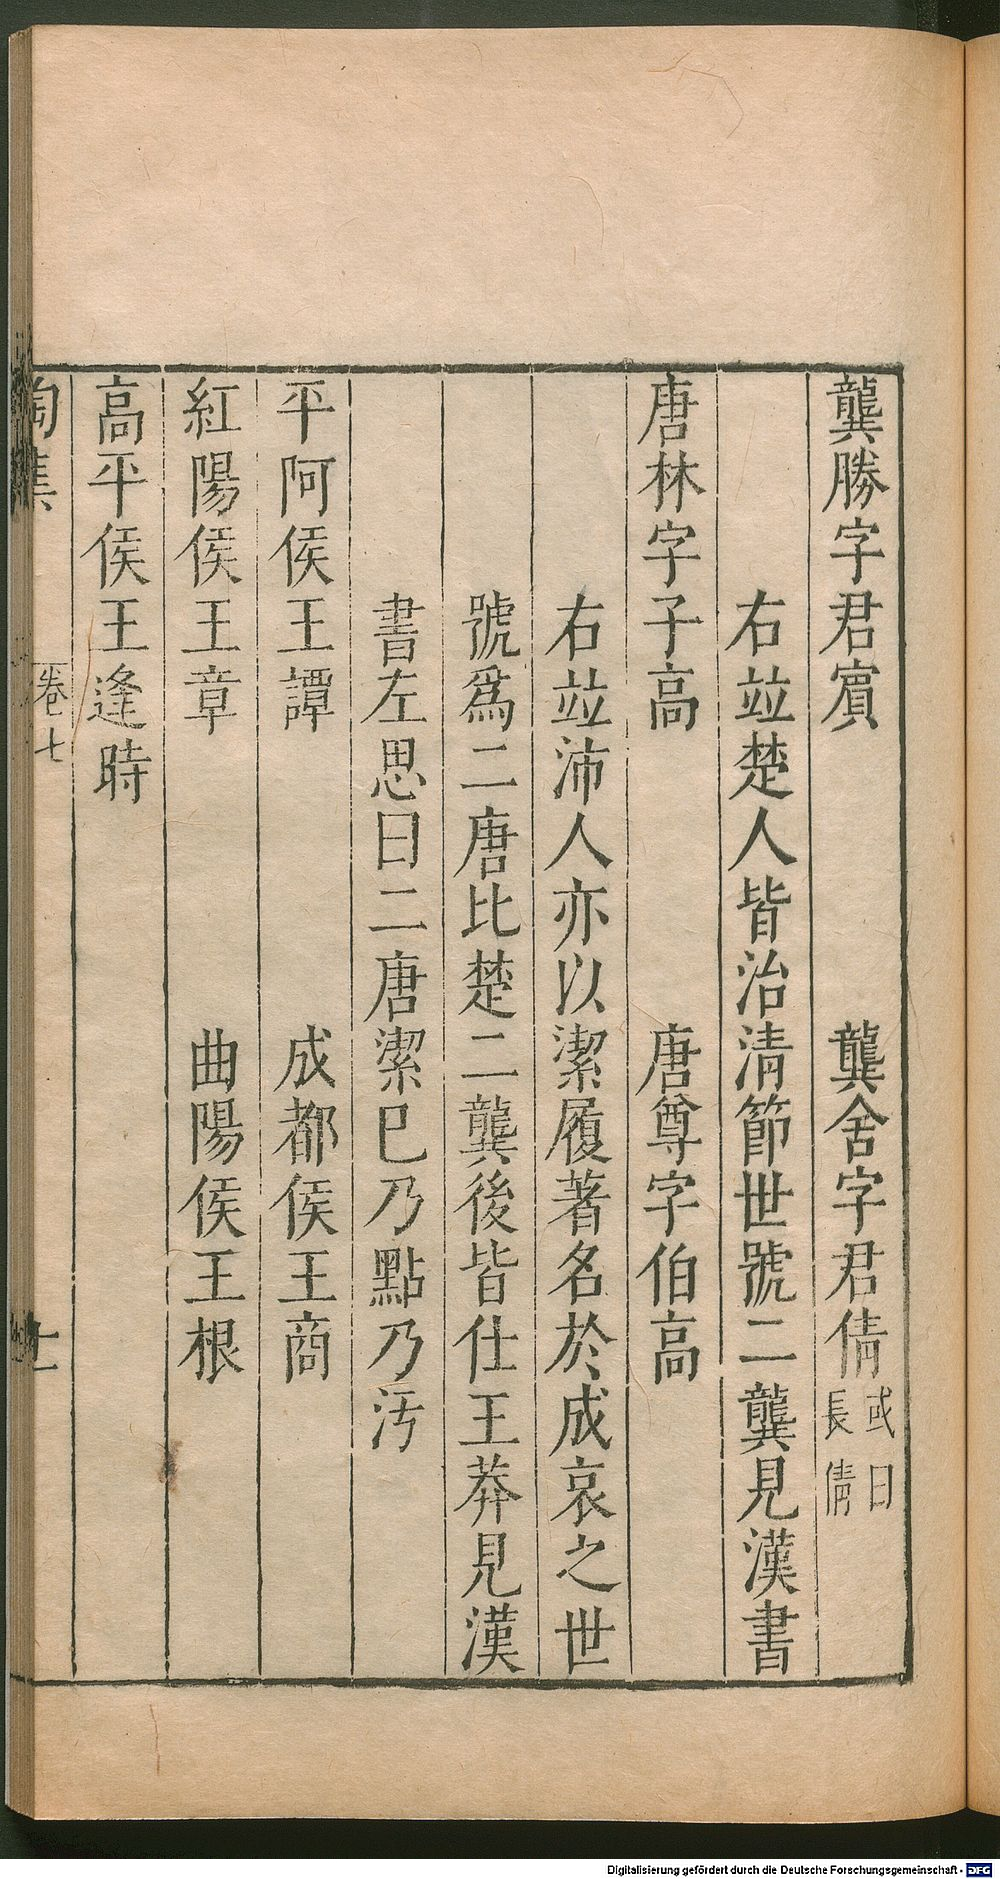 龔勝字君賔　龔舍字君倩或曰長倩
右竝楚人皆治清節世號二龔見漢書
唐林字子高　唐尊字伯高
右竝沛人亦以潔履著名於成哀之世
號爲二唐比楚二龔後皆仕王莽見漢
書左思曰二唐潔巳乃點乃汚
平阿侯王譚　成都侯王商
紅陽侯王章　曲陽侯王根
高平侯王逢時
陶集　卷七　十一
Digitalisierung gefördert durch die Deutsche Forschungsgemeinschaft - DFG